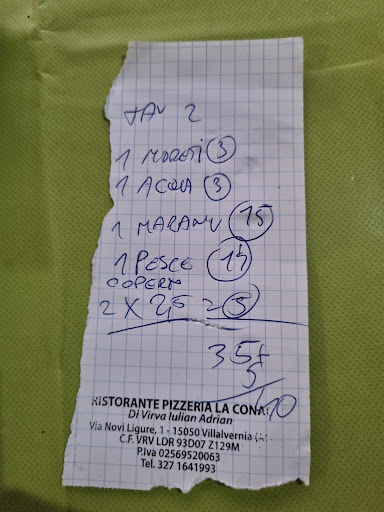 TAV 2
1 MORETI 3
1 ACQUA 3
1 MARAMU 15
1 PESCE 14
COPERTI
2 X 2,5 = 5
35+
5
40
RISTORANTE PIZZERIA LA CONA
Di Virva Iulian Adrian
Via Novi Ligure, 1 - 15050 Villalvernia (A
C.F. VRV LDR 93D07 Z129M
P.Iva 02569520063
Tel. 327 1641993